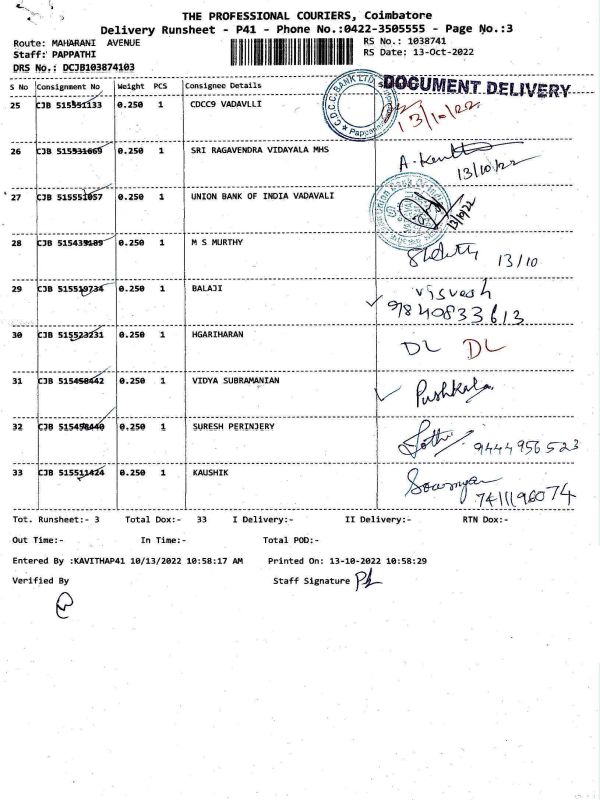 THE PROFESSIONAL COURIERS, Coimbatore
Delivery Runsheet - P41 - Phone No.:0422-3505555 - Page No.:3
Route: MAHARANI AVENUE
RS No.: 1038741
Staff: PAPPATHI
RS Date: 13-Oct-2022
DRS No.: DCJB103874103
S No Consignment No Weight PCS Consignee Details
DOCUMENT DELIVERY
C.D.C.C. BANK LTD
25 CJB 515551133 0.250 1 CDCC9 VADAVLLI
13/10/22
26 CJB 515531669 0.250 1 SRI RAGAVENDRA VIDAYALA MHS
13/10/22
27 CJB 515551057 0.250 1 UNION BANK OF INDIA VADAVALI
Union Bank Of India
13/10/22
28 CJB 515435189 0.250 1 M S MURTHY
13/10
29 CJB 515519734 0.250 1 BALAJI
Visvesh
9840833613
30 CJB 515523231 0.250 1 HGARIHARAN
DL DL
31 CJB 515458442 0.250 1 VIDYA SUBRAMANIAN
Pushkala
32 CJB 515458440 0.250 1 SURESH PERINJERY
9444956523
33 CJB 515511424 0.250 1 KAUSHIK
Sowmya
7411196074
Tot. Runsheet:- 3 Total Dox:- 33 I Delivery:- II Delivery:- RTN Dox:-
Out Time:- In Time:- Total POD:-
Entered By :KAVITHAP41 10/13/2022 10:58:17 AM Printed On: 13-10-2022 10:58:29
Verified By Staff Signature